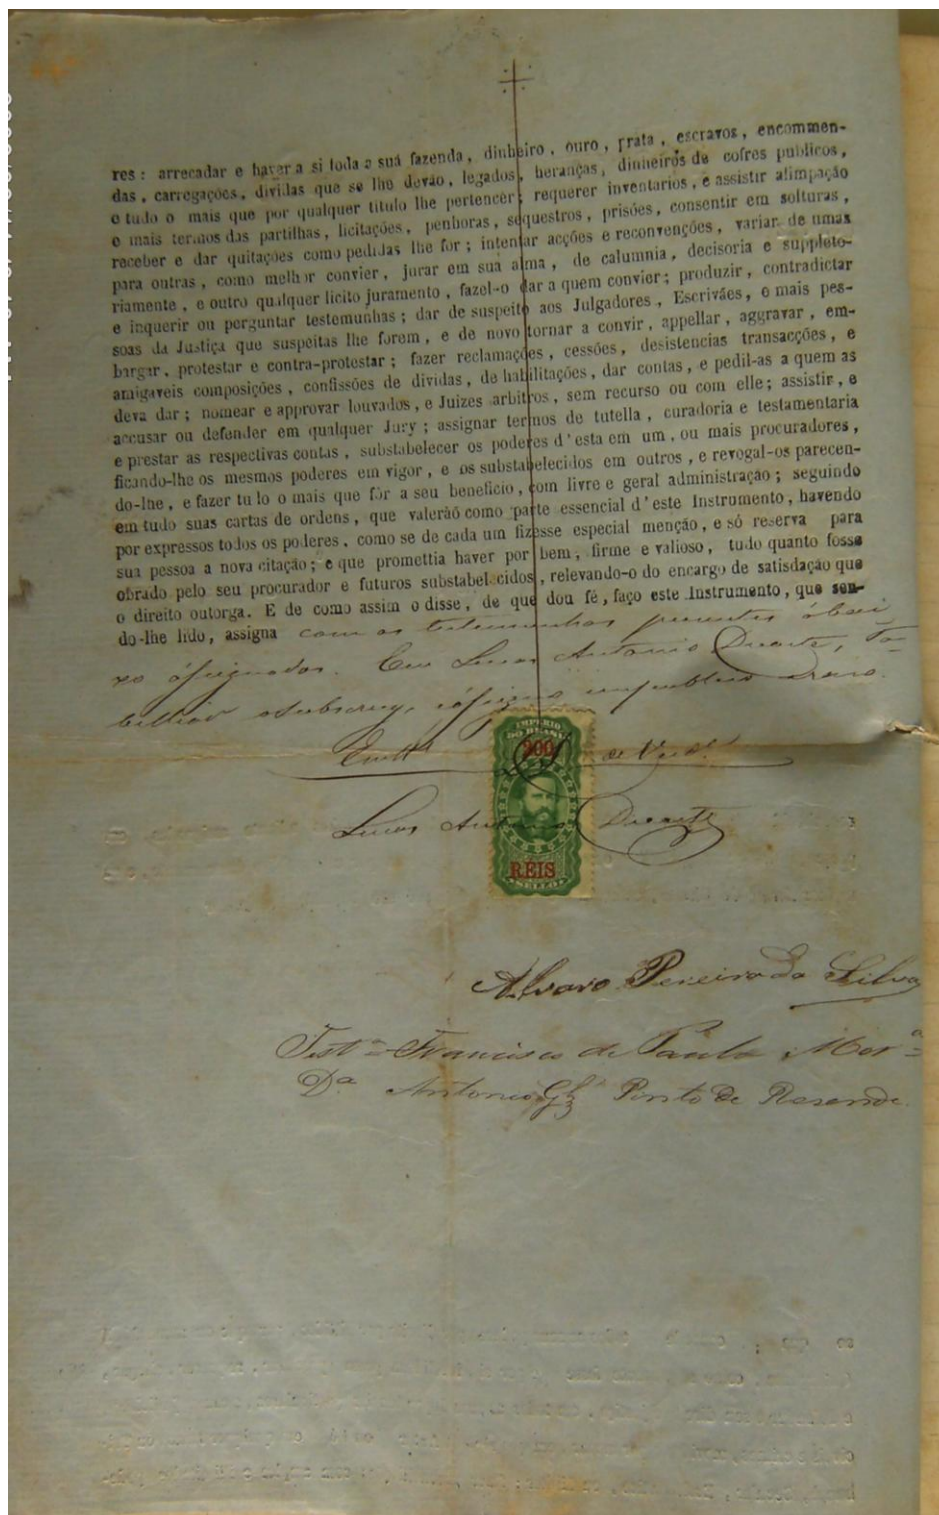 res: arrecadar e haver a si toda a suá fazenda, dinheiro, ouro, prata, escravos, encommen-
das, carregações, dividas que se lhe devão, legados, heranças, dinheiros de cofres publicos,
e tudo o mais que por qualquer titulo lhe pertencer; requerer inventarios, e assistir alimpação
e mais termos das partilhas, licitações, penhoras, sequestros, prisões, consentir em solturas,
receber e dar quitações como pedidas lhe for; intentar acções e reconvenções, variar de umas
para outras, como melhor convier, jurar em sua alma, de calumnia, decisoria e suppleto-
riamente, e outro qualquer licito juramento, fazel-o dar a quem convier; produzir, contradictar
e inquerir ou perguntar testemunhas; dar de suspeito aos Julgadores, Escrivães, e mais pes-
soas da Justiça que suspeitas lhe forem, e de novo tornar a convir, appellar, aggravar, em-
bargar, protestar e contra-protestar; fazer reclamações, cessões, desistencias transacções, e
amigaveis composições, confissões de dividas, de habilitações, dar contas, e pedil-as a quem as
deva dar; nomear e approvar louvados, e Juizes arbitros, sem recurso ou com elle; assistir, e
accusar ou defender em qualquer Jury; assignar termos de tutella, curadoria e testamentaria
e prestar as respectivas contas, substabelecer os poderes d'esta em um, ou mais procuradores,
ficando-lhe os mesmos poderes em vigor, e os substabelecidos em outros, e revogal-os parecen-
do-lhe, e fazer tudo o mais que fôr a seu beneficio, com livre e geral administração; seguindo
em tudo suas cartas de ordens, que valeráõ como parte essencial d'este Instrumento, havendo
por expressos todos os poderes, como se de cada um fizesse especial menção, e só reserva para
sua pessoa a nova citação; e que promettia haver por bem, firme e valioso, tudo quanto fosse
obrado pelo seu procurador e futuros substabelecidos, relevando-o do encargo de satisdação que
o direito outorga. E de como assim o disse, de que dou fé, faço este Instrumento, que sen-
do-lhe lido, assigna com as testemunhas presentes ábai
xo ásignados. Eu Lucas Antonio Duarte, Ta-
bellião subscrevy, e ásigno em publico e raso.
IMPERIO
DO BRASIL
200
Em tt.º de Verd.e
Lucas Antonio Duarte
RÉIS
Alvaro Pereira da Silva
Test.ª Francisco de Paula Mor.ª
D.ª Antonio Glz Pinto de Resende